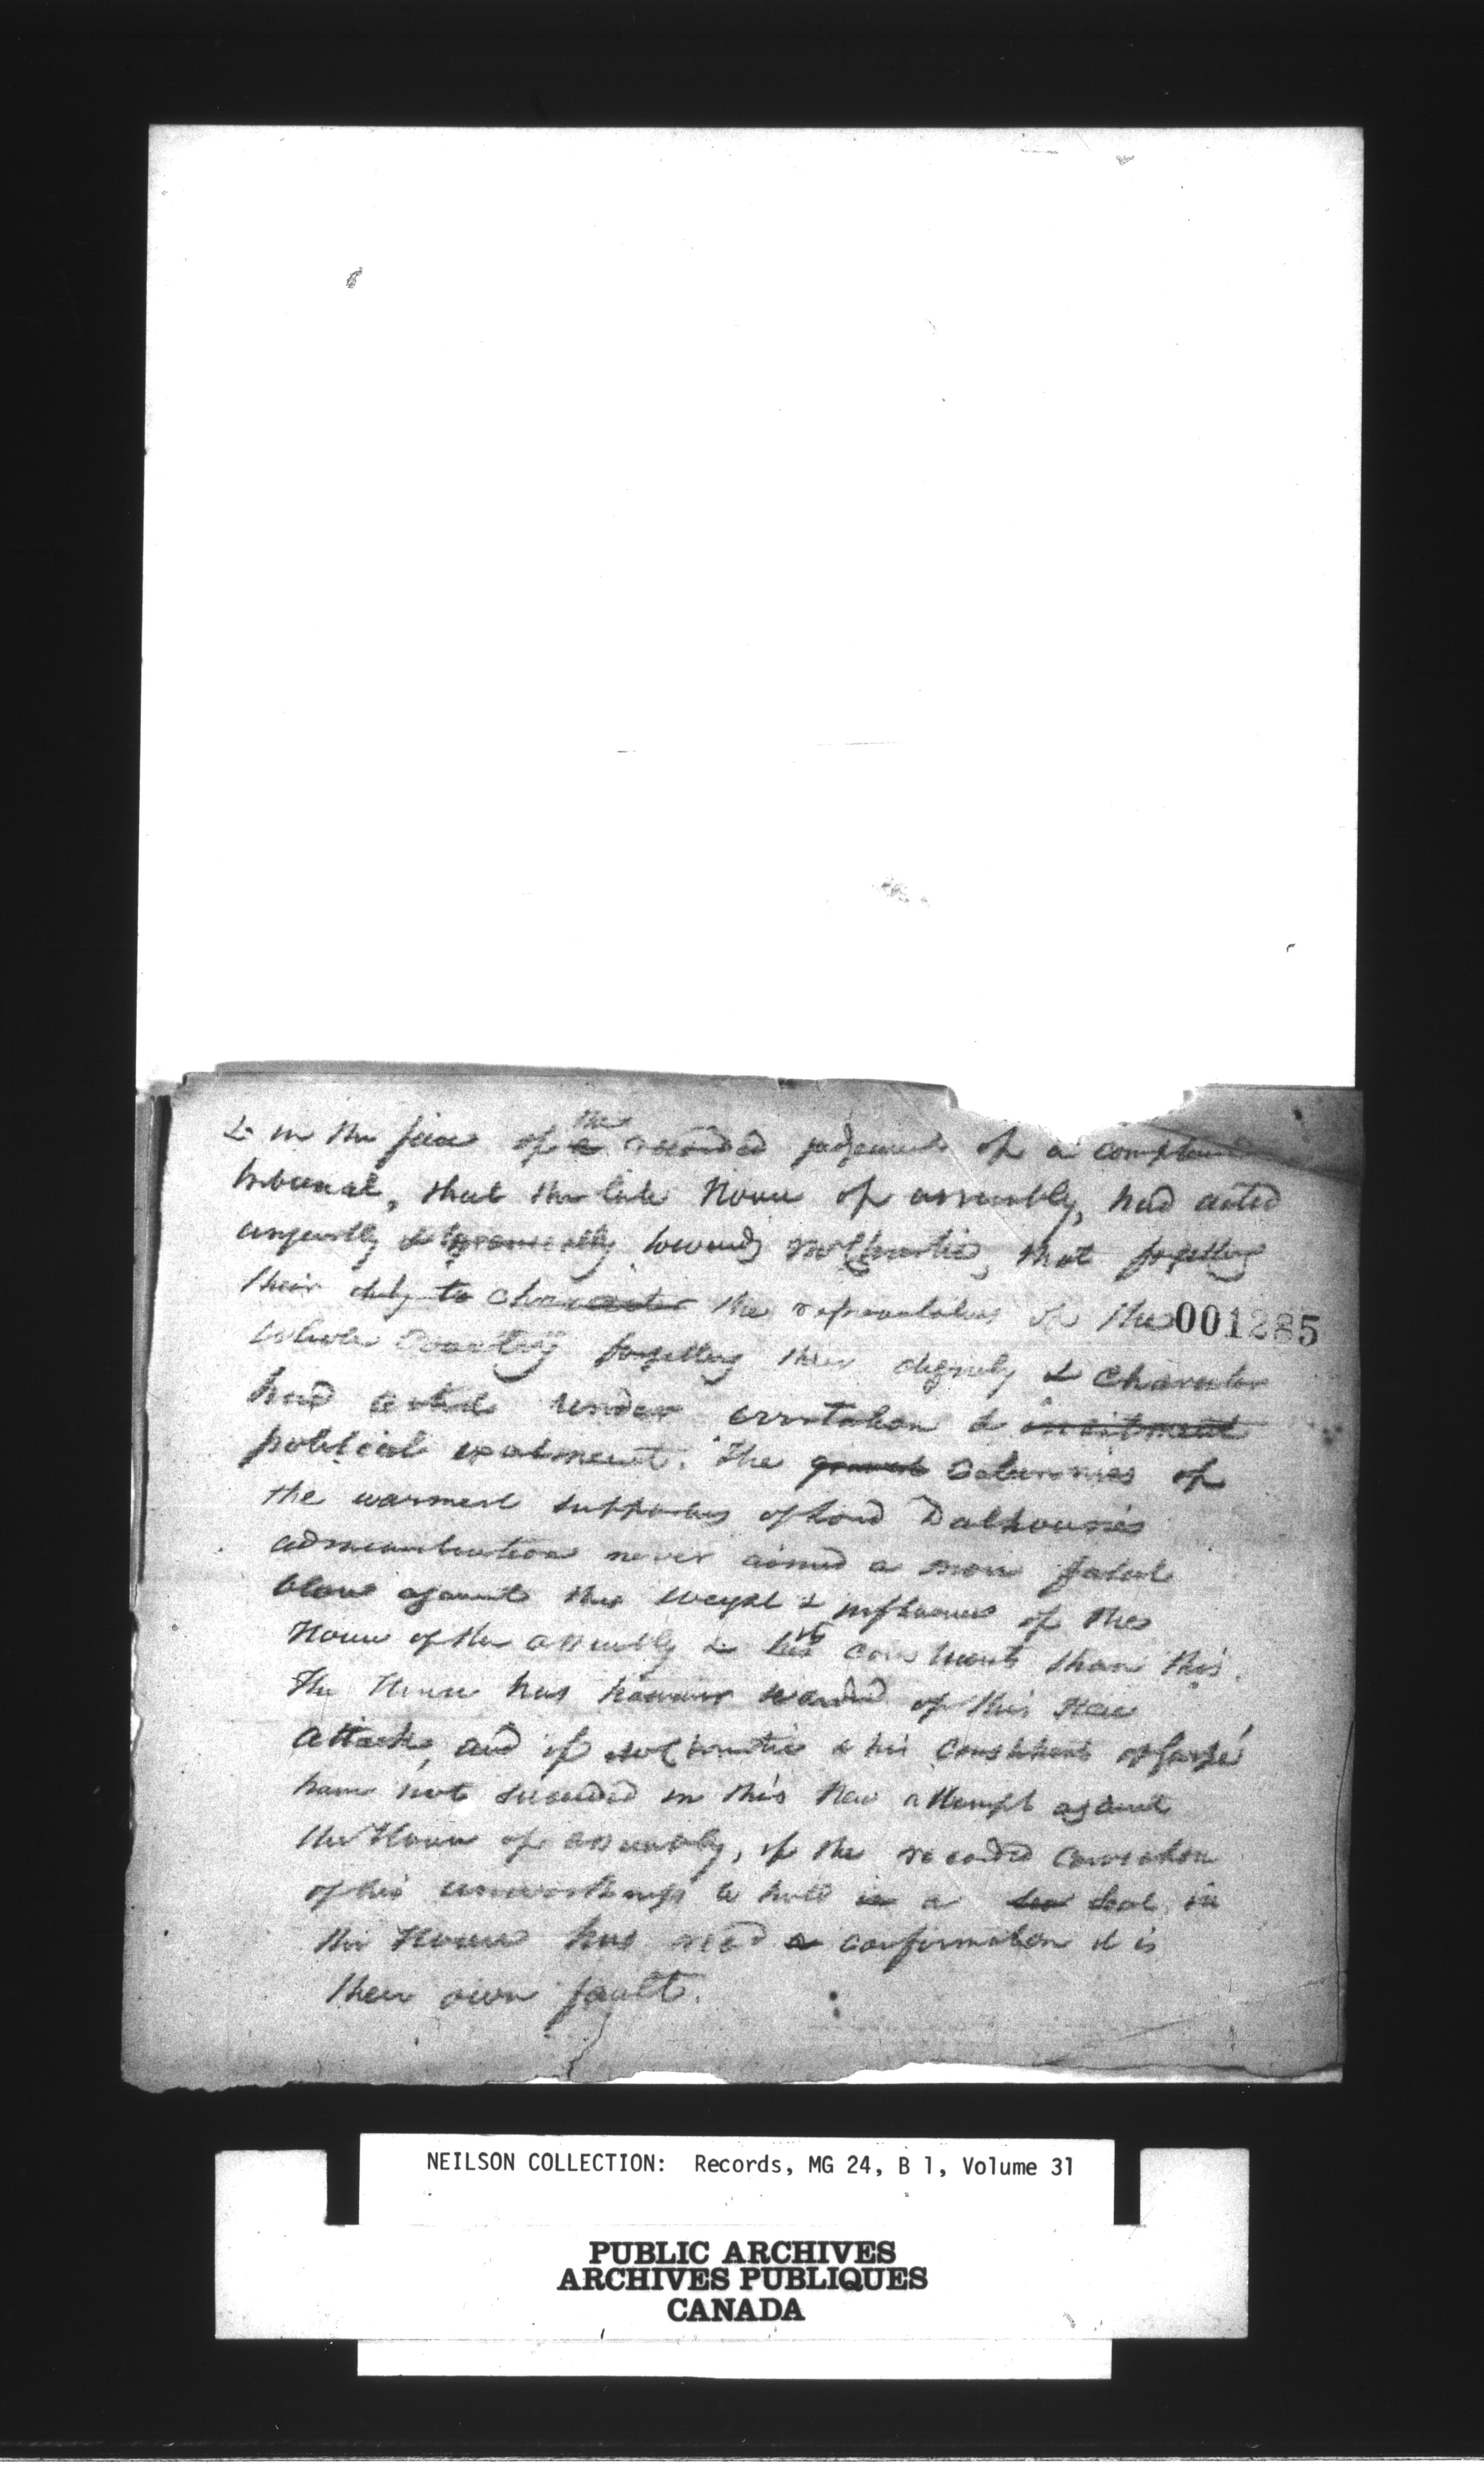 & in the face of the recorded judgement of a competent
tribunal, that the late House of assembly, had acted
unjustly & tyranically towards Mr Christie, that forgetting
their duty to character the representatives of the 001285
whole Country forgetting their dignity & Character
had acted under irritation & incitment
political exalment. The calumnies of
the warmest supporters of Lord Dalhousie's
administration never aimed a more fatal
blow against the weight & influence of the
House of the assembly & its constituents than this.
The House has however heard of this New
attack, and if Mr Christie & his Constituents of Gaspé
have not succeeded in this New attempt against
the House of assembly, if the recorded conviction
of his unworthiness to hold in a seat in
the House has recd a confirmation it is
their own fault.
NEILSON COLLECTION: Records, MG 24, B 1, Volume 31
PUBLIC ARCHIVES
ARCHIVES PUBLIQUES
CANADA